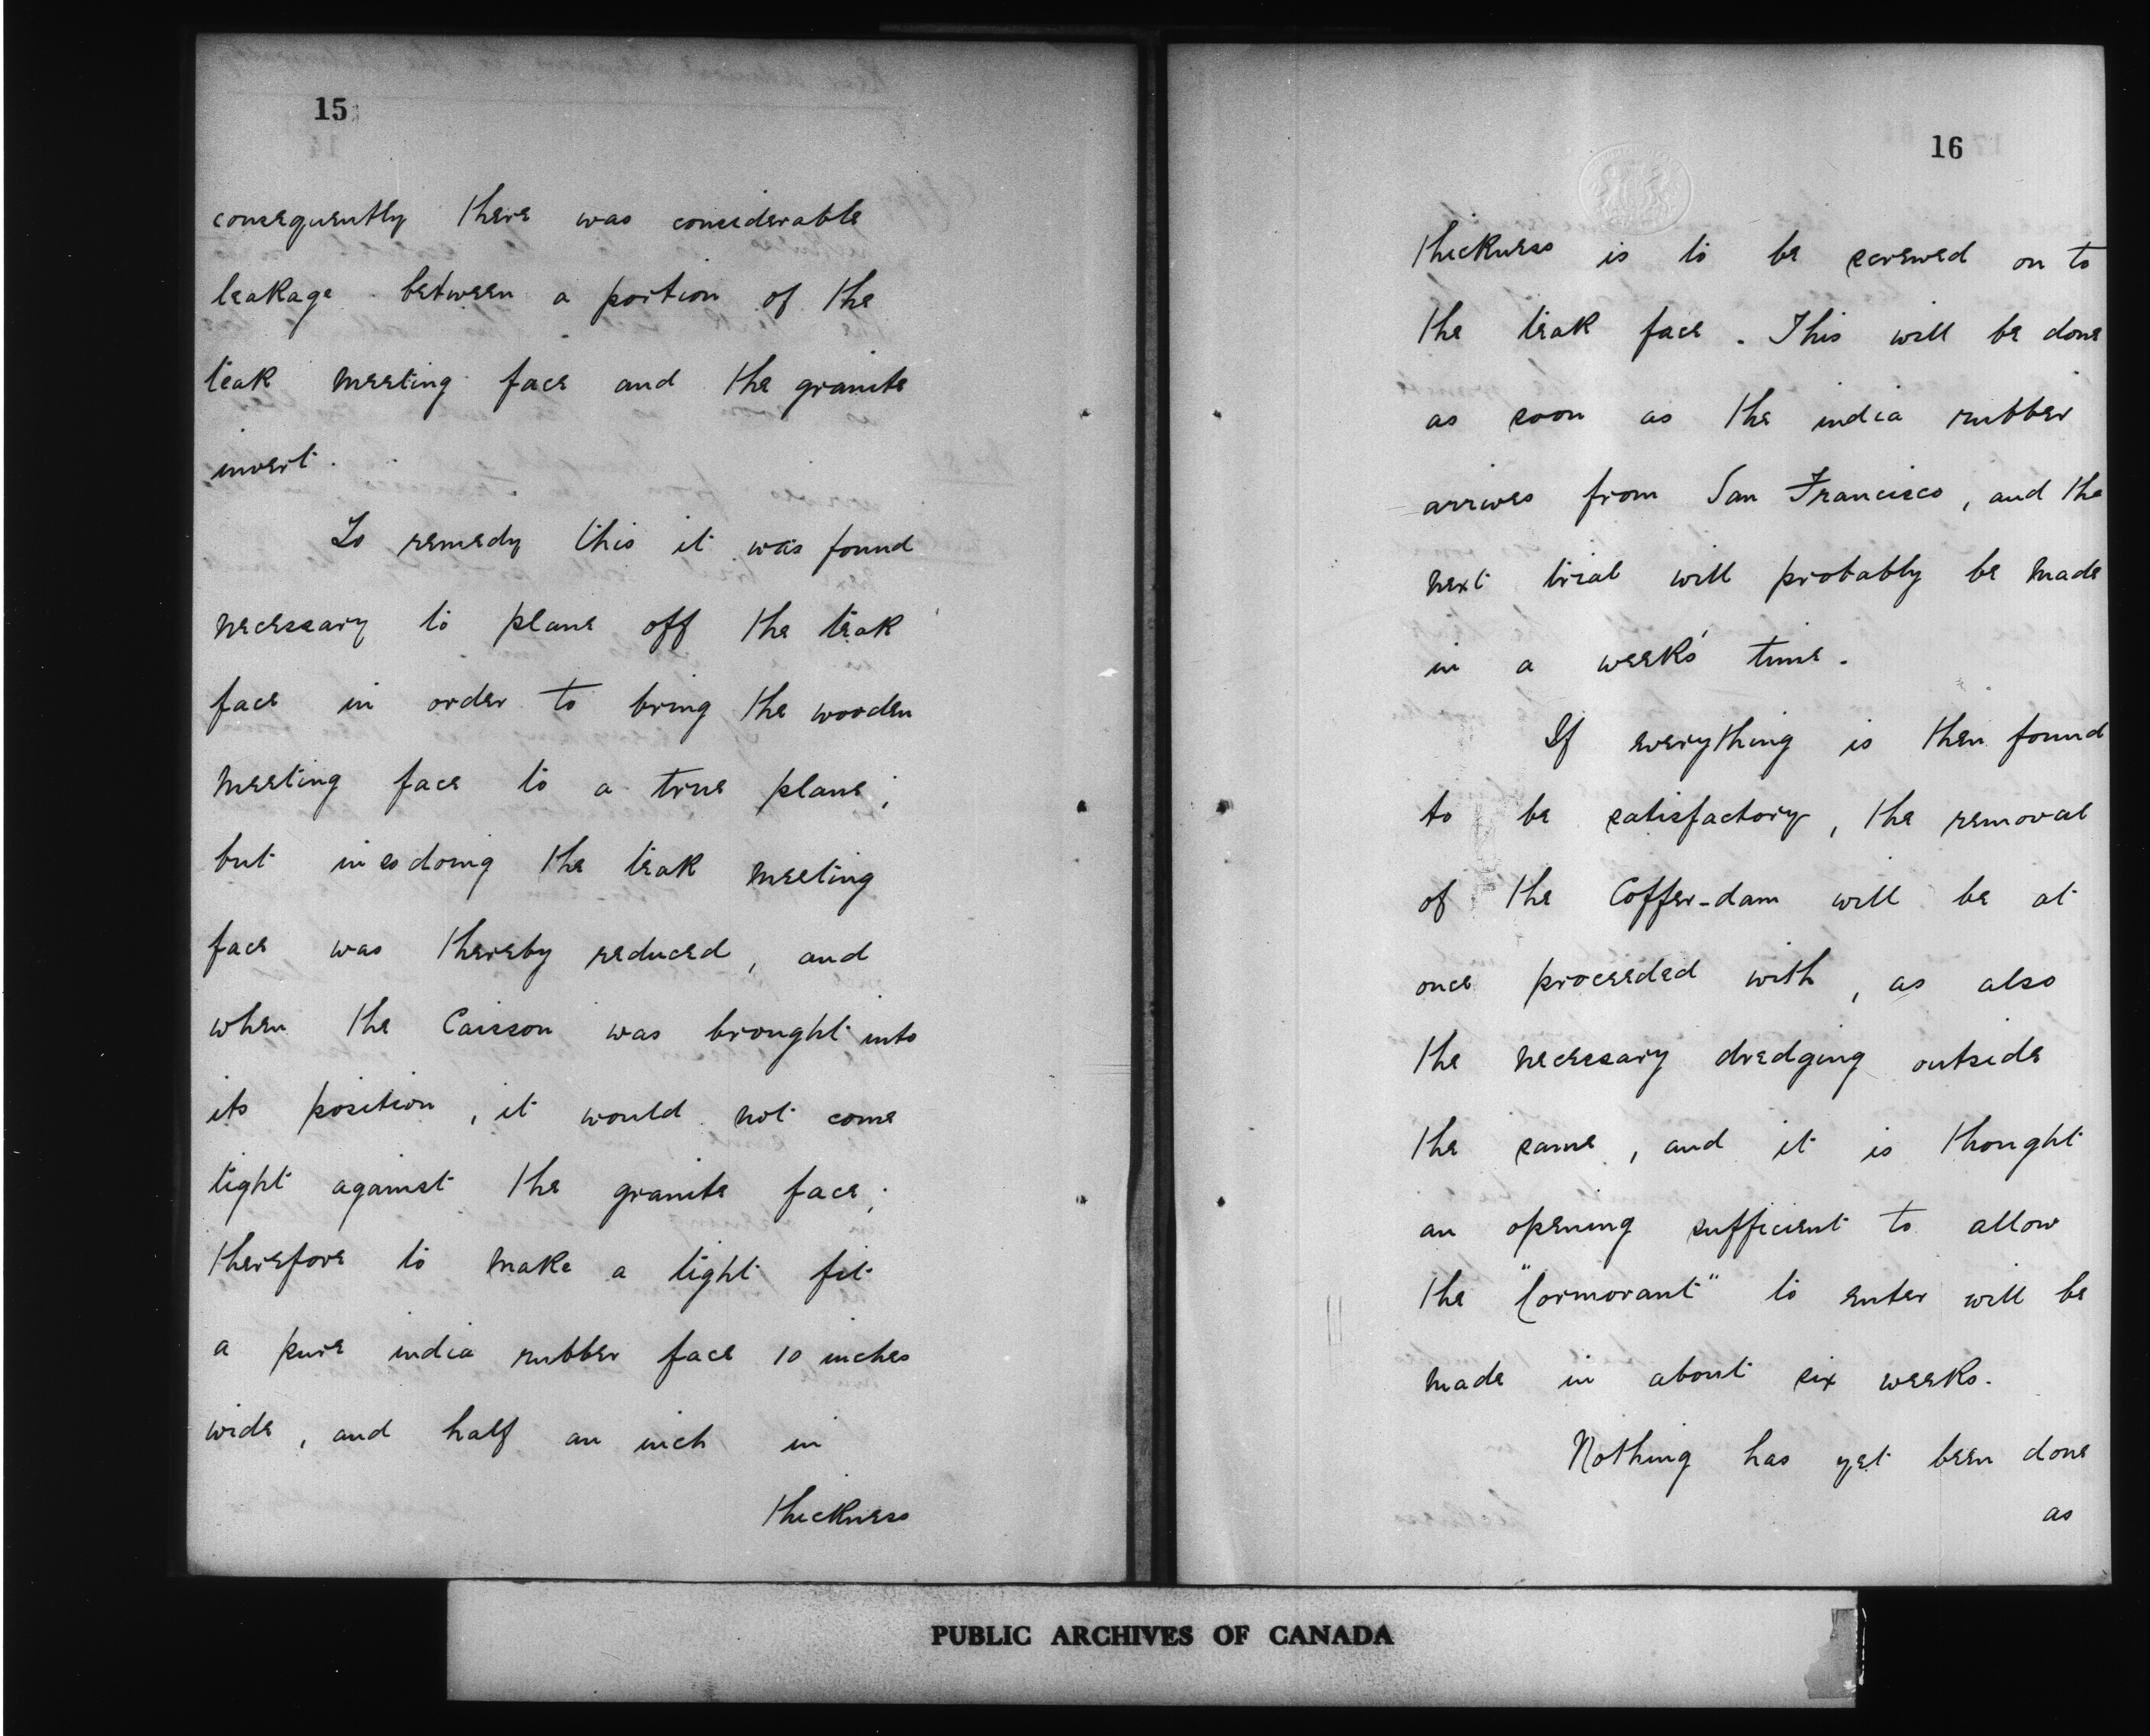 15
consequently there was considerable
leakage between a portion of the
teak meeting face and the granite
invert.
To remedy this it was found
necessary to plane off the teak
face in order to bring the wooden
meeting face to a true plane;
but in so doing the teak meeting
face was thereby reduced, and
when the Caisson was brought into
its position, it would not come
tight against the granite face;
therefore to make a tight fit
a pure india rubber face 10 inches
wide, and half an inch in
thickness
16
thickness is to be screwed on to
the teak face. This will be done
as soon as the india rubber
arrives from San Francisco, and the
next trial will probably be made
in a week's time.
If everything is then found
to be satisfactory, the removal
of the Coffer-dam will be at
once proceeded with, as also
the necessary dredging outside
the same, and it is thought
an opening sufficient to allow
the "Cormorant" to enter will be
made in about six weeks.
Nothing has yet been done
as
PUBLIC ARCHIVES OF CANADA